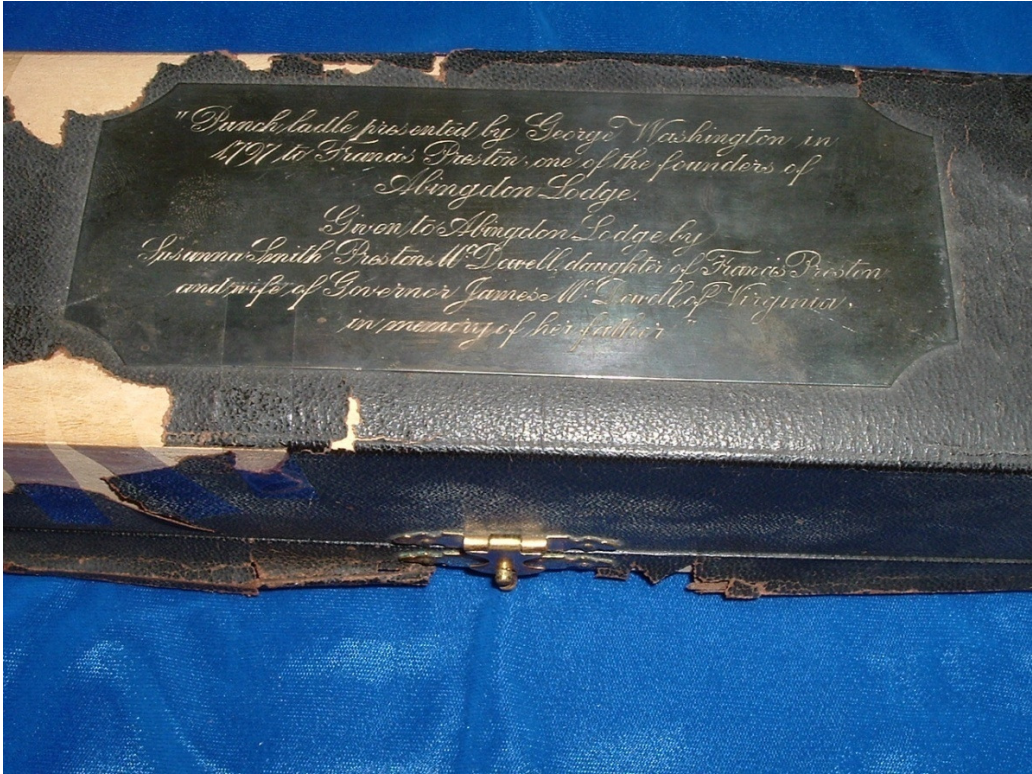 "Punch ladle presented by George Washington in
1797 to Francis Preston, one of the founders of
Abingdon Lodge.
Given to Abingdon Lodge by
Susanna Smith Preston McDowell, daughter of Francis Preston
and wife of Governor James McDowell, of Virginia,
in memory of her father"